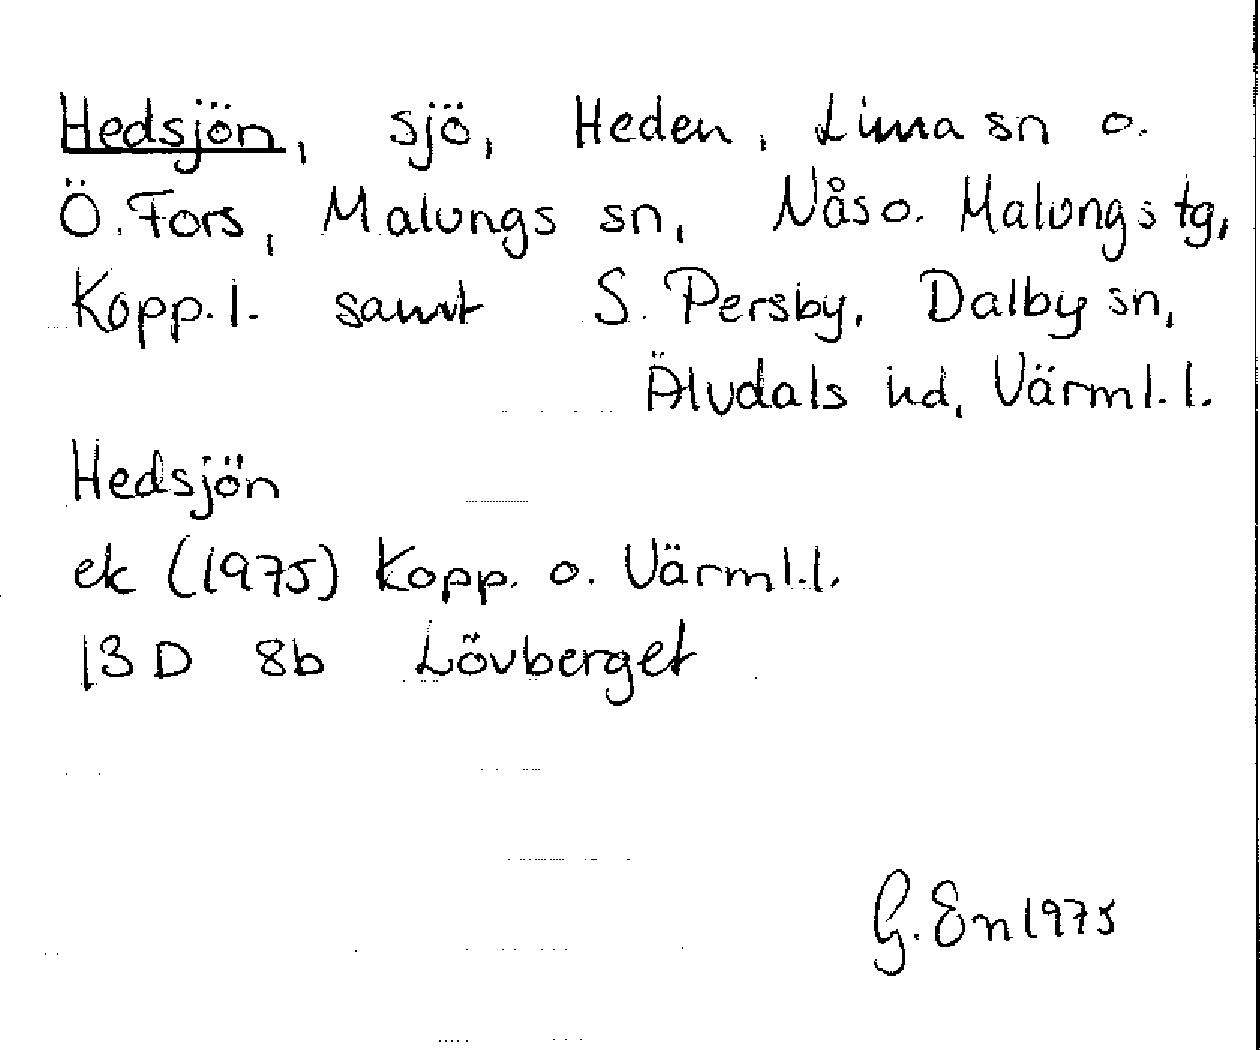 Hedsjön, sjö, Heden, Lima sn o.
Ö. Fors, Malungs sn, Nås o. Malungs tg,
Kopp. l. samt S. Persby, Dalby sn,
Älvdals hd, Värml. l.
Hedsjön
ek (1975) Kopp. o. Värml. l.
13 D 8b Lövberget
G. En 1975